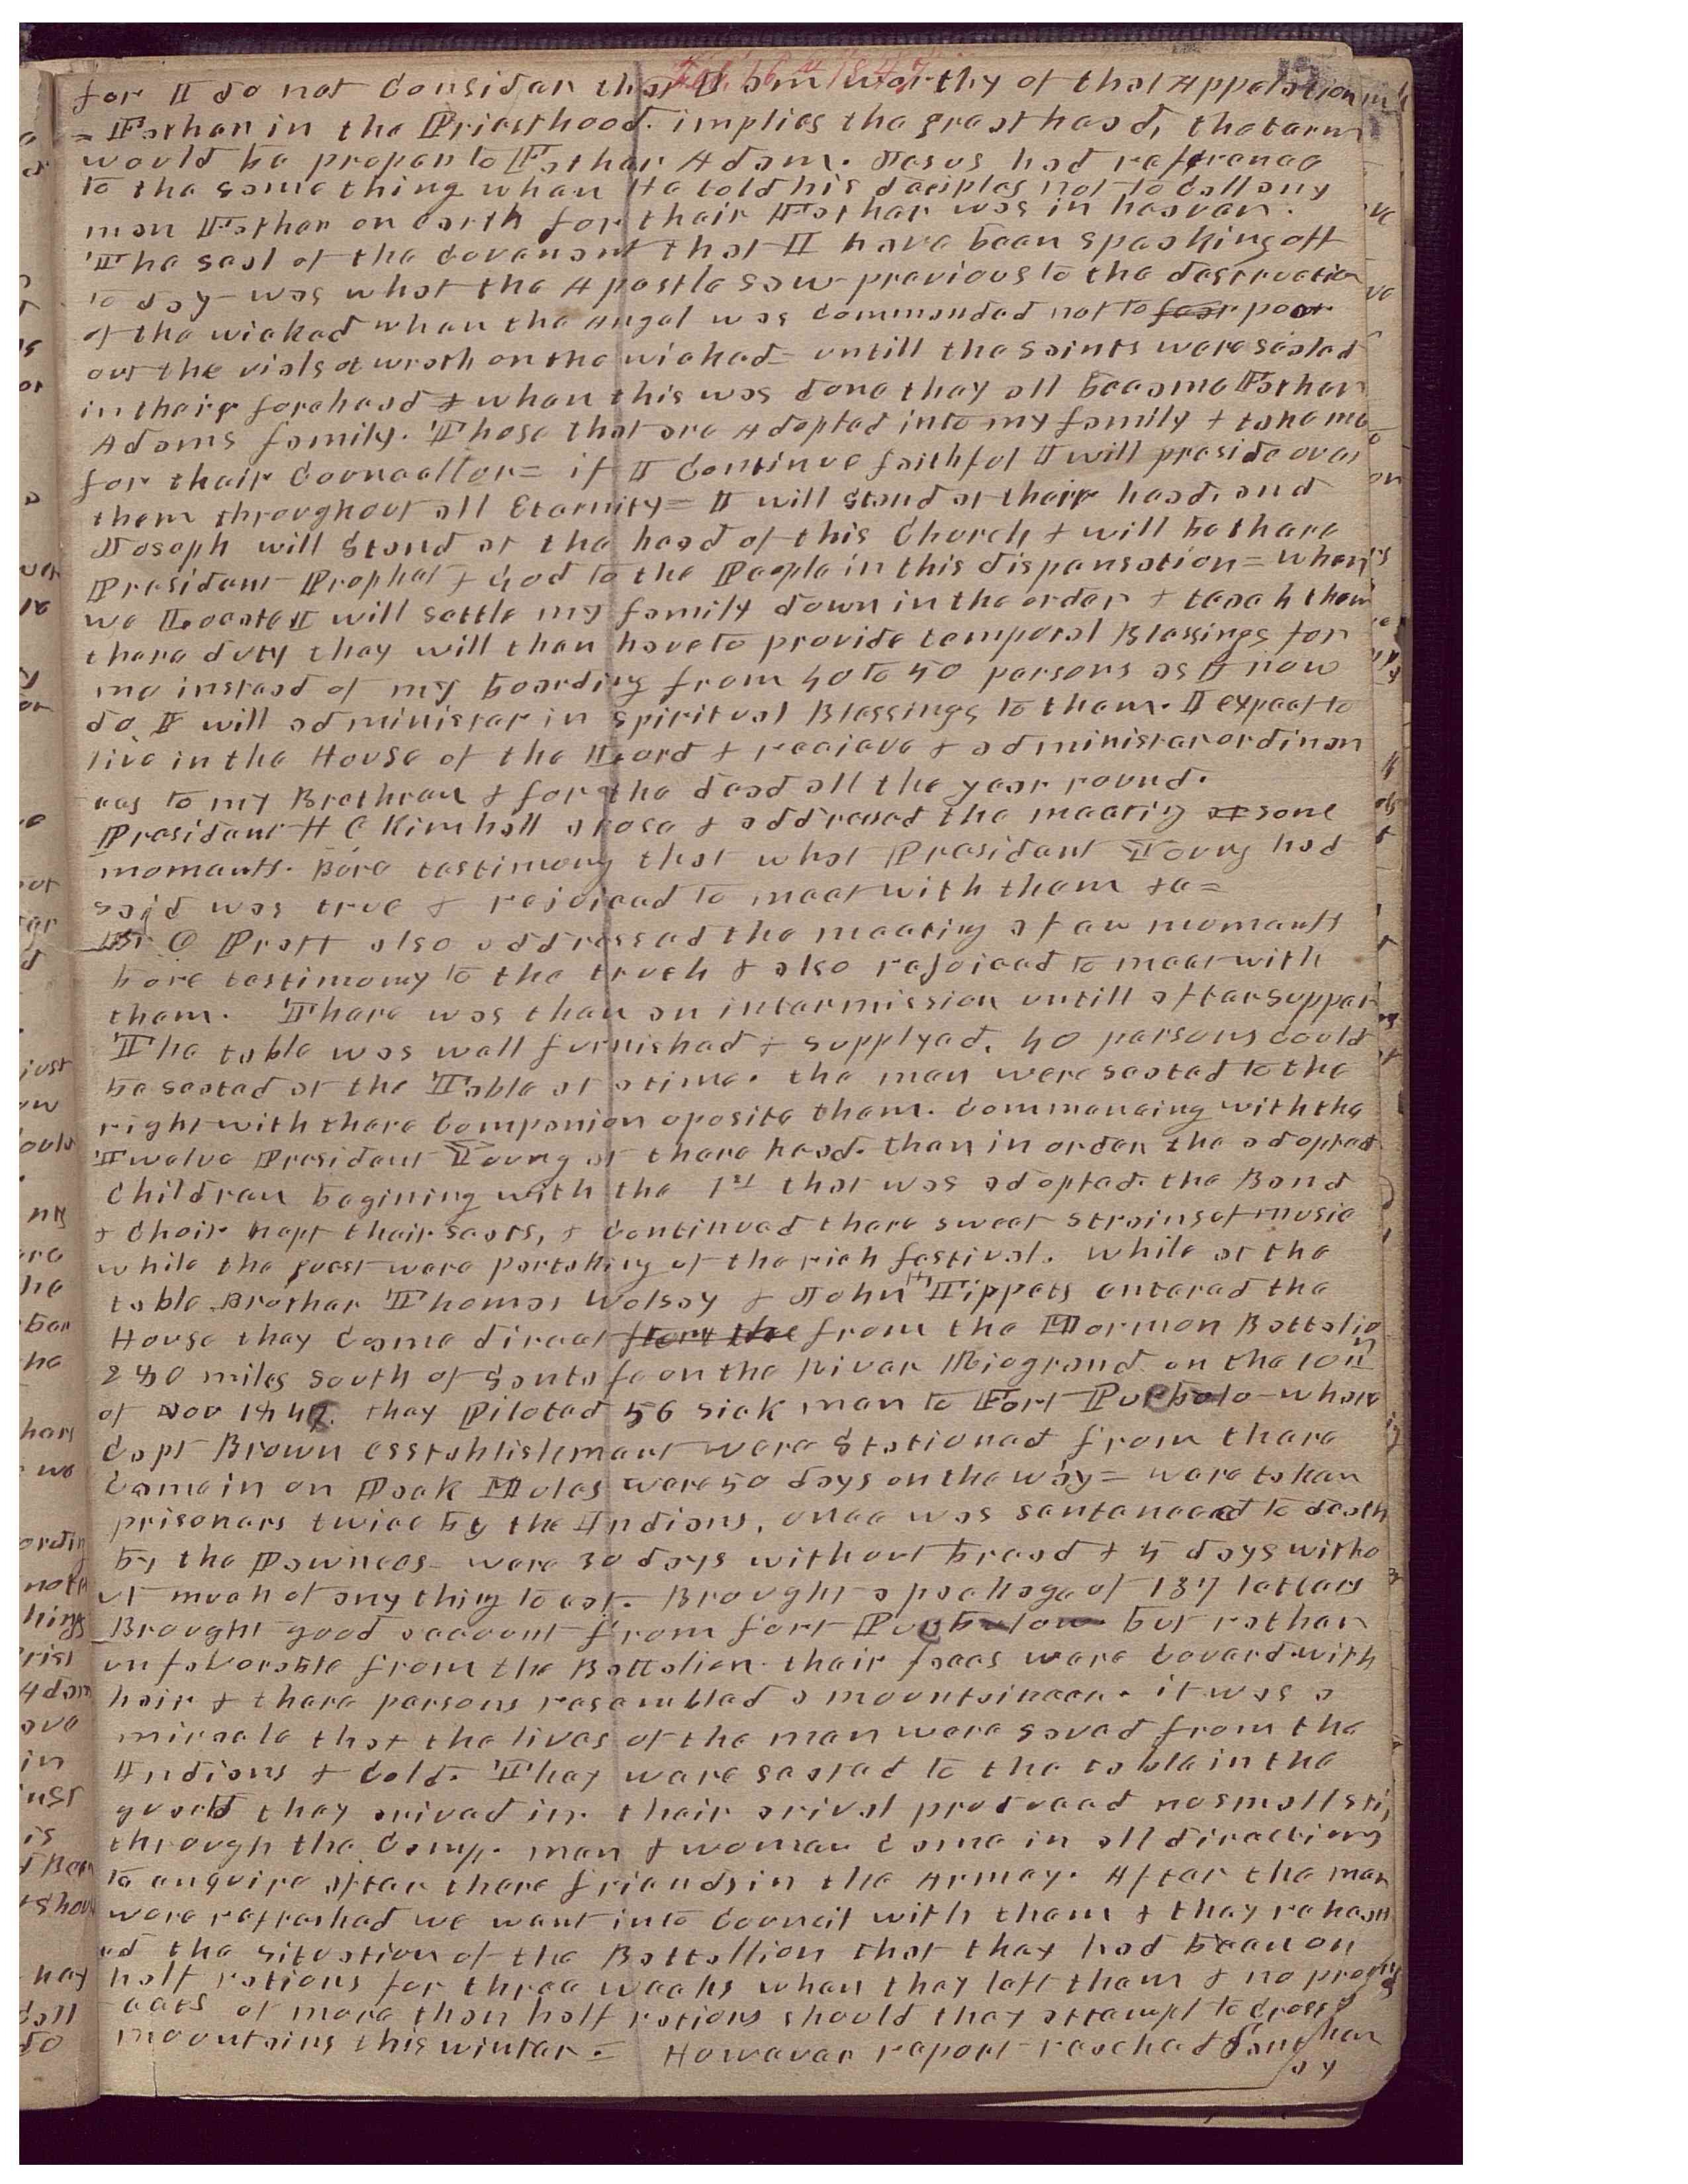 Feb 16th 1847
for I do not Consider that I am worthy of that Appelation
= Father in the Priesthood. implies the great head, the term
would be proper to Father Adam. Jesus had refrence
to the same thing when He told his deciples not to Call any
man Father on earth for their Father was in heaven.
The seal of the Covenant that I have been speaking off
to day - was what the Apostle saw previous to the destruction
of the wicked when the Angel was Commanded not to fear poor
out the vials of wrath on the wicked - untill the saints were sealed
in their forehead & when this was done they all became Father
Adams family. Those that are Adopted into my family & take me
for their Councellor = if I Continue faithful I will preside over
them throughout all Eternity = I will stand at their head, and
Joseph will Stand at the head of this Church & will be there
President Prophet & God to the People in this dispensation = when
we Locate I will settle my family down in the order & teach them
there duty they will then have to provide temporal Blessings for
me instead of my boarding from 40 to 50 persons as I now
do, I will administer in spiritual Blessings to them. I expect to
live in the House of the Lord & receieve & administer ordinan
ces to my Brethren & for the dead all the year round.
President H C Kimball arose & addressed the meeting at some
moments. Bore testimony that what President Young had
said was true & rejoiced to meet with them &c =
Br O Pratt also addressed the meeting a few moments
bore testimony to the truth & also rejoiced to meet with
them. There was then an intermission untill after supper
The table was well furnished & supplyed. 40 persons could
be seated at the Table at a time. the men were seated to the
right with there Companion oposite them. Commencing with the
Twelve President Young at there head. then in order the adopted
Children begining with the 1st that was adopted. the Band
& Choir kept their seats, & Continued there sweet strains of music
while the guest were partaking of the rich festival. while at the
table Brother Thomas Wolsey & John H Tippets entered the
House they Came direct from the from the Mormon Battalion
240 miles south of Santafe on the River Riogrand on the 10th
of Nov 1846. they Piloted 56 sick men to Fort Puebolo - where
Capt Brown esstablishment were Stationed from there
Came in on Pack Mules were 50 days on the way = were taken
prisoners twice by the Indians, once was santenceed to death
by the Pawnees - were 30 days without bread & 5 days witho
ut much of any thing to eat. Brought a package of 137 letters
Brought good account from fort Puebulow but rather
unfavorable from the Battalion. their faces were Coverd with
hair & there persons resembled a mountaineer. it was a
miracle that the lives of the men were saved from the
Indians & Cold. They were seated to the table in the
guard they arived in. their arival produced no small stir
through the Camp. men & women Came in all directions
to enquire after there friends in the Armey. After the men
were refreshed we went into Council with them & they rehears
ed the situation of the Battallion that they had been on
half rations for three weeks when they left them & no prosp
ects of more than half rations should they attempt to Cross
mountains this winter. = However report reached Sant